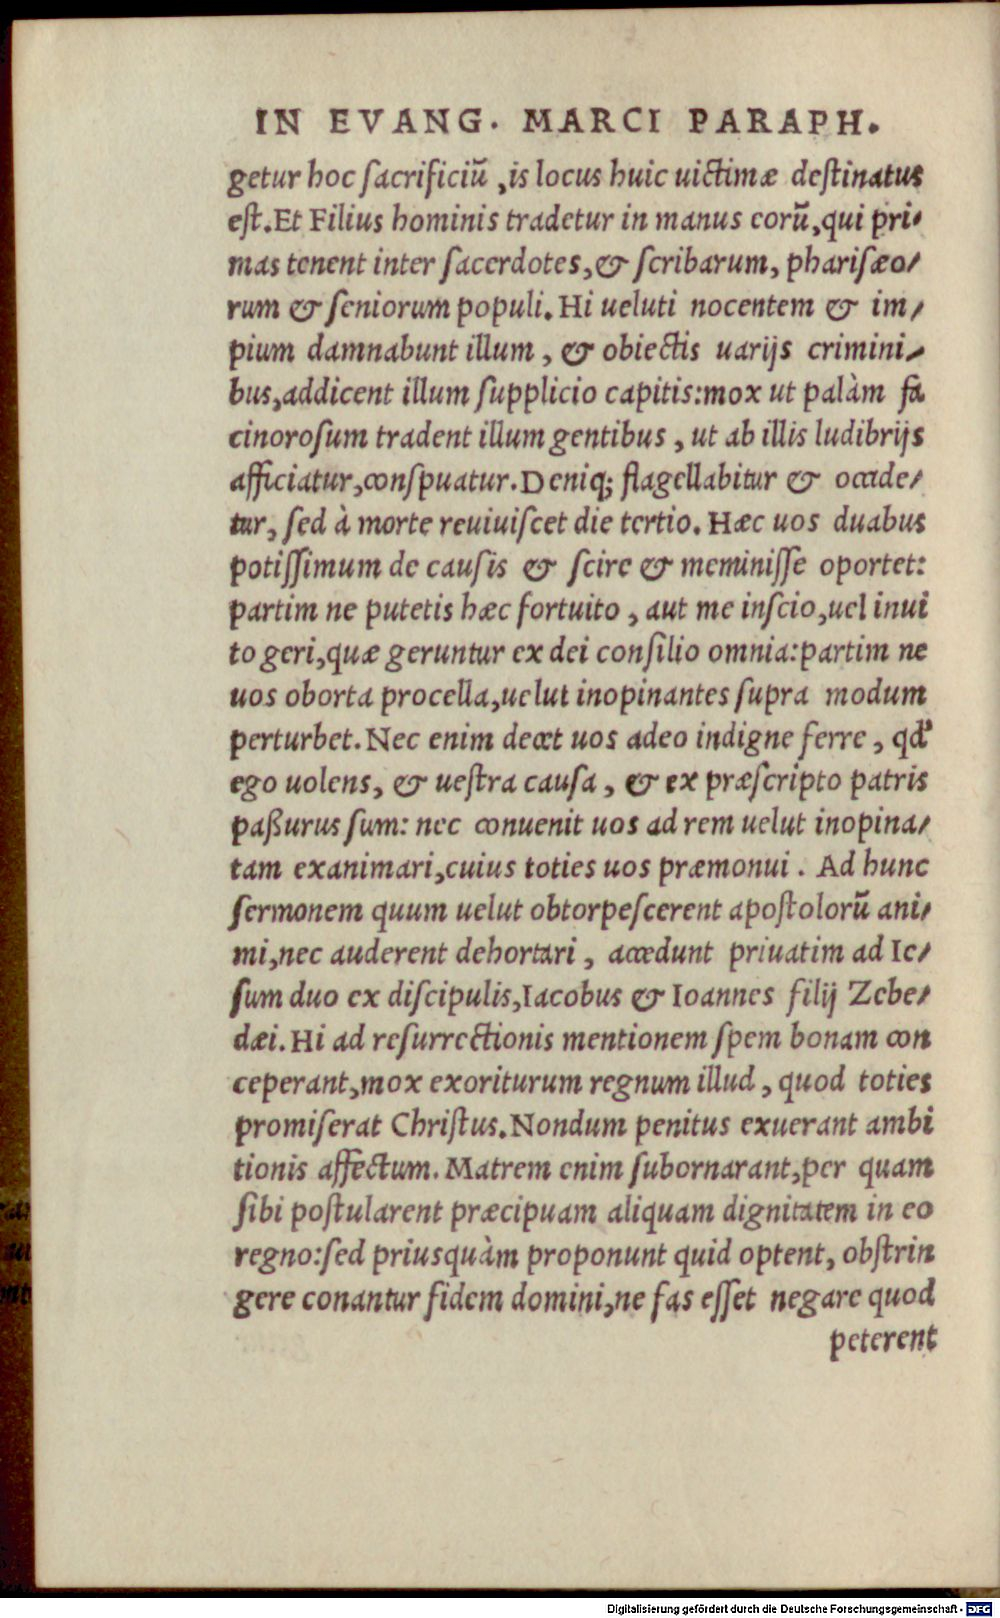 IN EVANG. MARCI PARAPH.
getur hoc ſacrificiũ ,is locus huic uictimæ deſtinatus
eſt.Et Filius hominis tradetur in manus eorũ,qui pri-
mas tenent inter ſacerdotes,& ſcribarum, phariſæo/
rum & ſeniorum populi. Hi ueluti nocentem & im/
pium damnabunt illum , & obiectis uarijs crimini/
bus,addicent illum ſupplicio capitis:mox ut palàm fa
cinoroſum tradent illum gentibus , ut ab illis ludibrijs
afficiatur,conſpuatur.Deniq; flagellabitur & occide/
tur, ſed à morte reuiuiſcet die tertio. Hæc uos duabus
potiſſimum de cauſis & ſcire & meminiſſe oportet:
partim ne putetis hæc fortuito , aut me inſcio,uel inui
to geri,quæ geruntur ex dei conſilio omnia:partim ne
uos oborta procella,uelut inopinantes ſupra modum
perturbet. Nec enim decet uos adeo indigne ferre , qd'
ego uolens, & ueſtra cauſa , & ex præſcripto patris
paßurus ſum: nec conuenit uos ad rem uelut inopina/
tam exanimari,cuius toties uos præmonui . Ad hunc
ſermonem quum uelut obtorpeſcerent apoſtolorũ ani/
mi,nec auderent dehortari , accedunt priuatim ad Ie/
ſum duo ex diſcipulis,Iacobus & Ioannes filij Zebe/
dæi. Hi ad reſurrectionis mentionem ſpem bonam con
ceperant,mox exoriturum regnum illud , quod toties
promiſerat Chriſtus. Nondum penitus exuerant ambi
tionis affectum. Matrem enim ſubornarant,per quam
ſibi poſtularent præcipuam aliquam dignitatem in eo
regno:ſed priusquàm proponunt quid optent, obſtrin
gere conantur fidem domini,ne fas eſſet negare quod
peterent
Digitalisierung gefördert durch die Deutsche Forschungsgemeinschaft - DFG